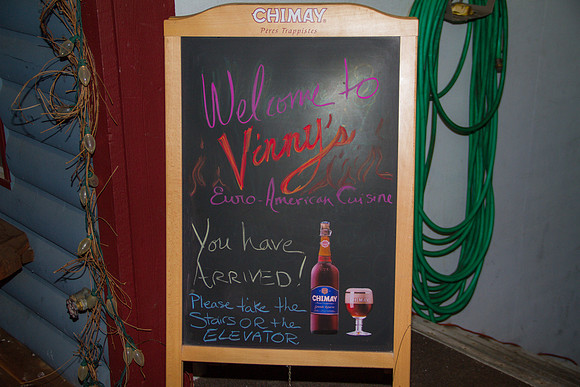 CHIMAY
Peres Trappistes
Welcome to
Vinny's
Euro-American Cuisine
You have
ARRIVED!
Please take the
Stairs OR the
ELEVATOR
CHIMAY
CHIMAY